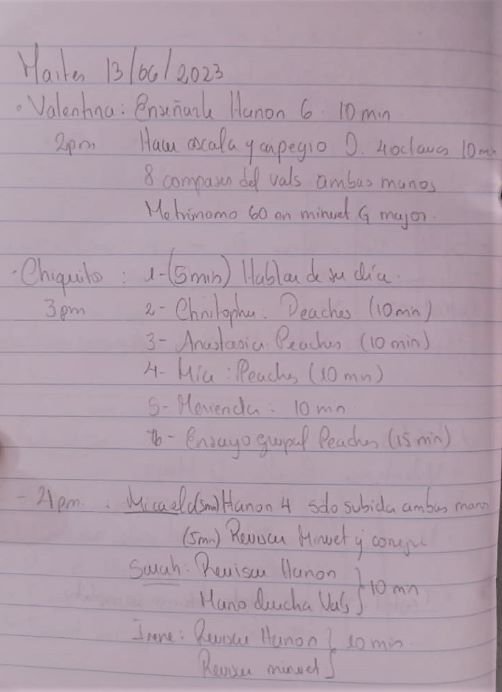 Martes 13/06/2023
· Valentina: Enseñarle Hanon 6. 10 min
2pm Hacer escala y arpegio D. 4octavas 10min
8 compases del vals ambas manos
Metrónomo 60 en minuet G major.
· Chiquito: 1-(5min) Hablar de su día.
3pm 2- Christopher. Peaches (10min)
3- Anastasia: Peaches (10 min)
4- Mia: Peaches (10 min)
5- Merienda: 10 min
6- Ensayo grupal Peaches (15 min)
- 4pm: Micael (5min) Hanon 4 solo subida ambas manos
(5min) Revisar Minuet y
Sarah: Revisar Hanon } 10 min
Mano derecha Vals
Irene: Revisar Hanon } 10 min.
Revisar minuet